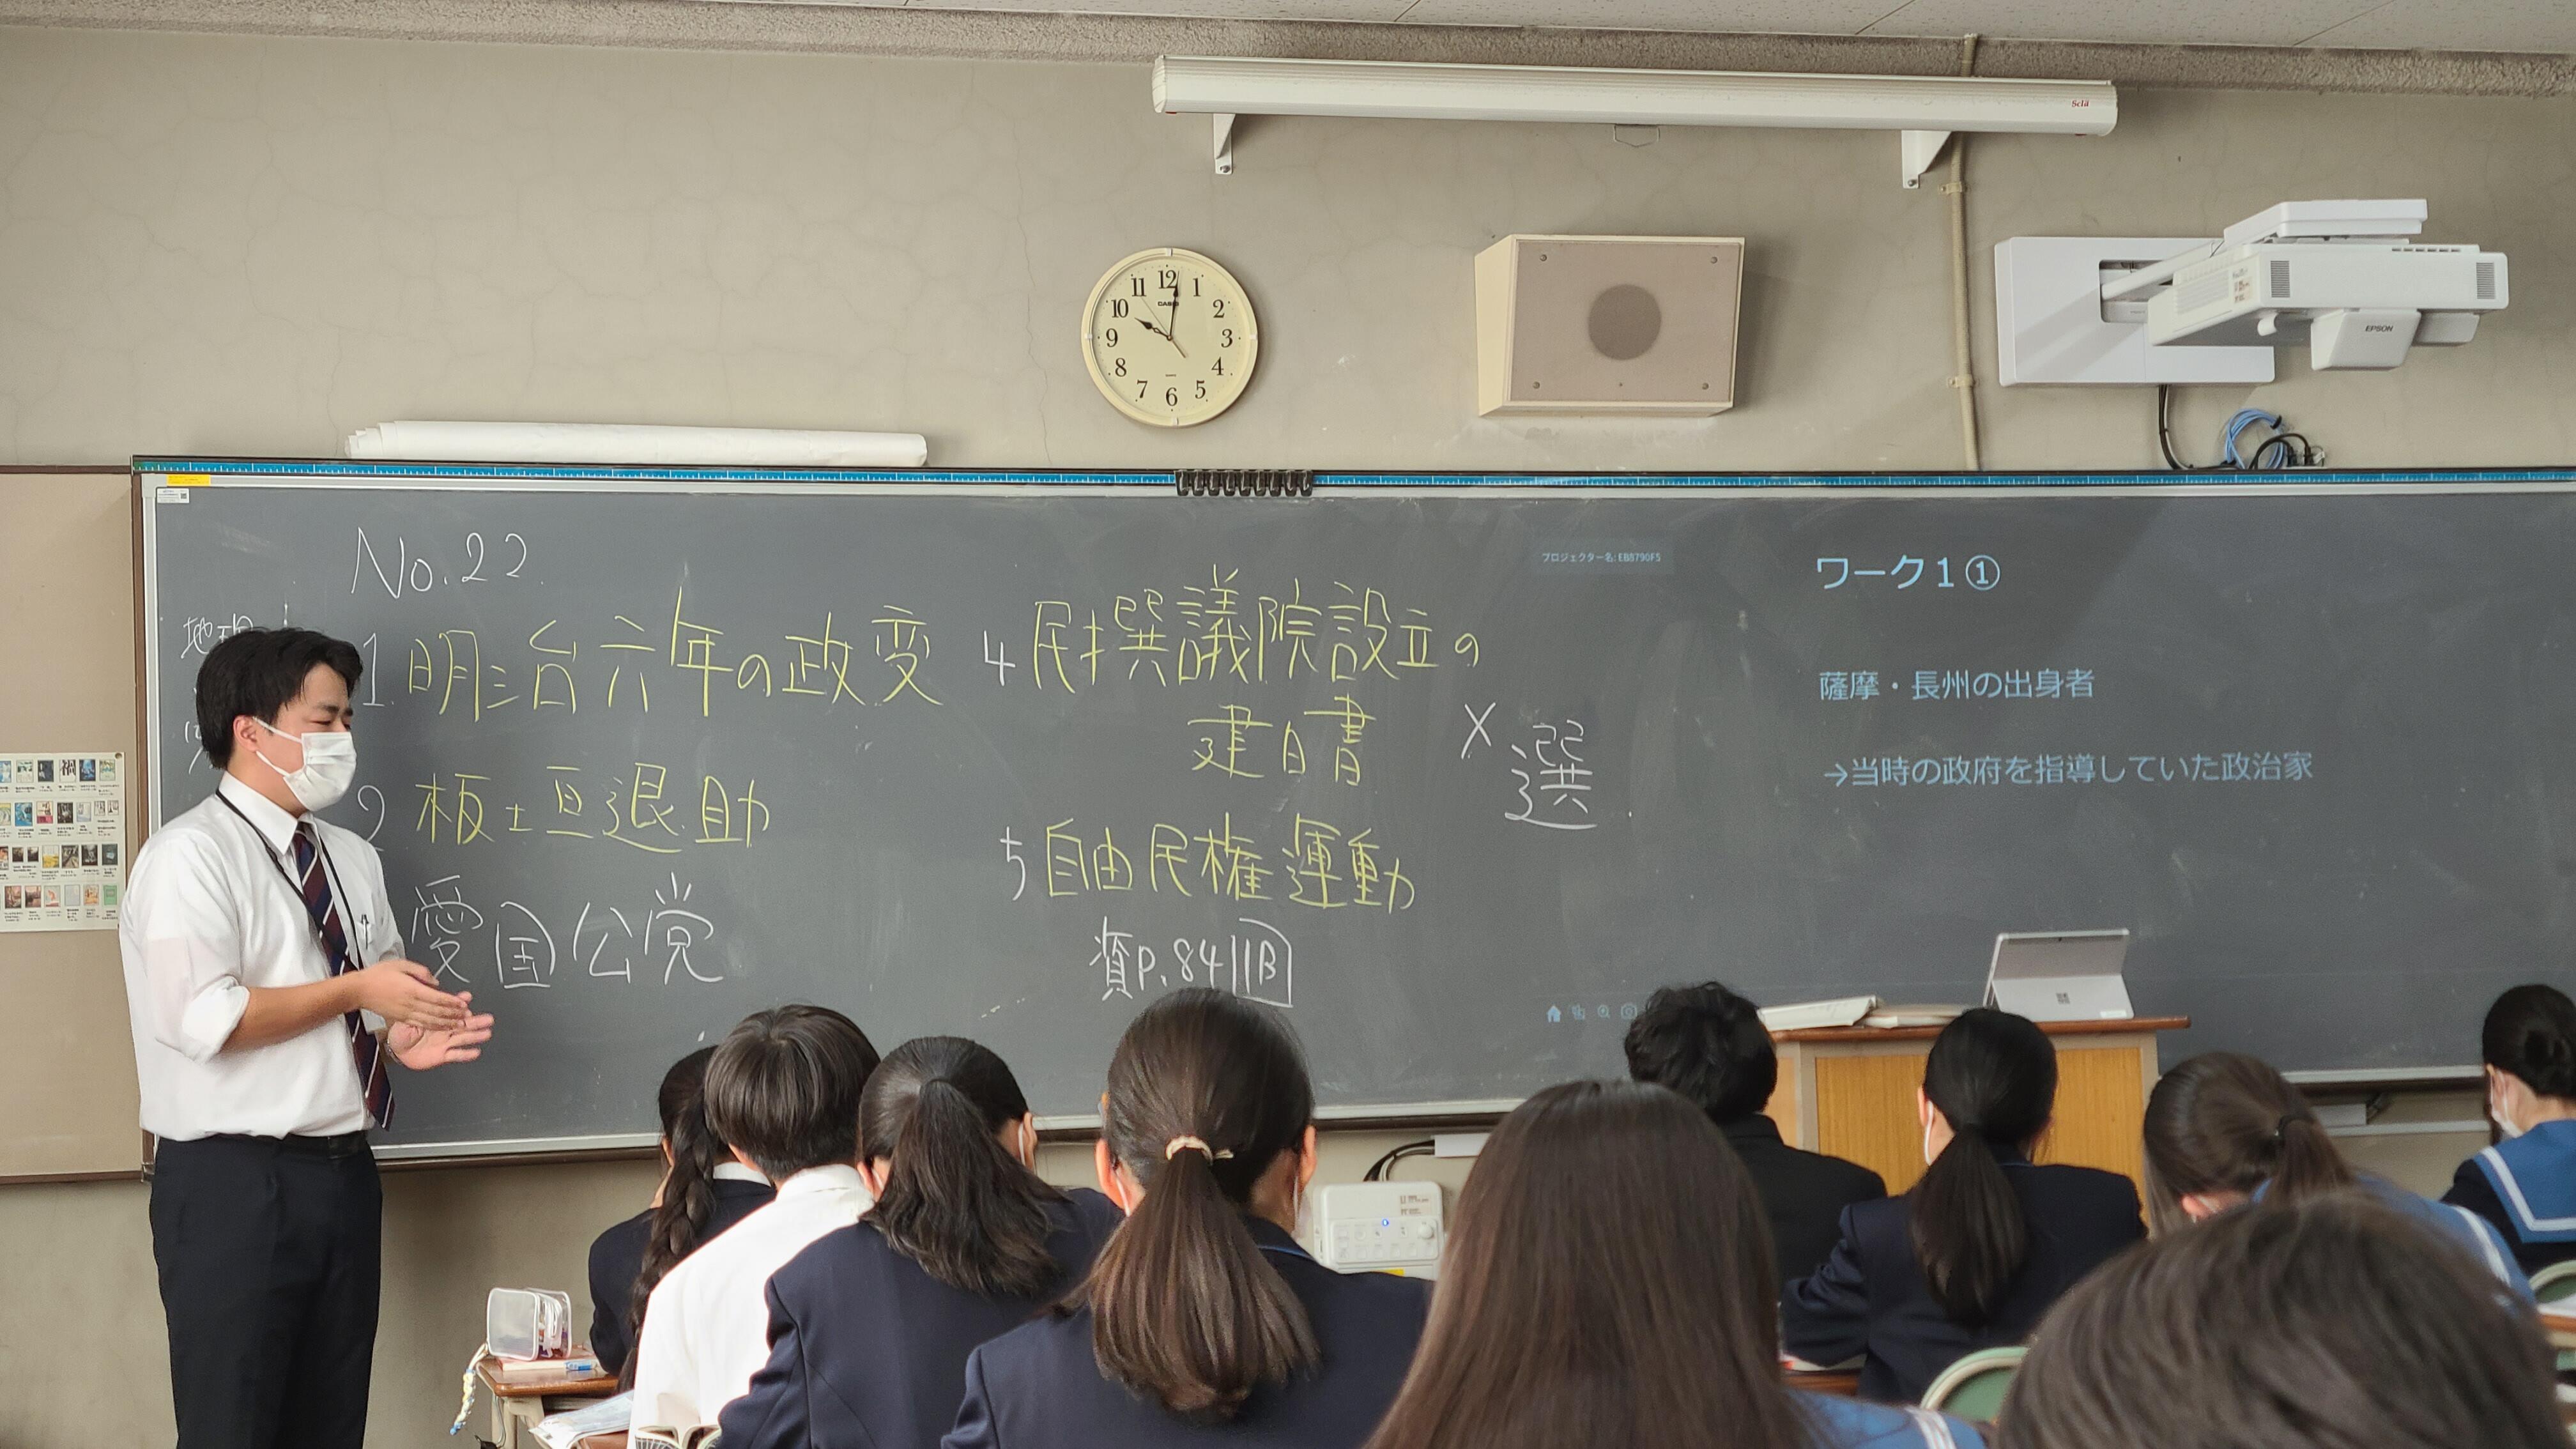 Sclá
12
1
2
3
4
5
6
7
8
9
10
11
CASIO
EPSON
No.22
1. 明治六年の政変
2 板垣退助
愛国公党
4 民撰議院設立の
建白書
× 選
5 自由民権運動
資P.84 11B
プロジェクター名: EB8790F5
ワーク1①
薩摩・長州の出身者
→当時の政府を指導していた政治家